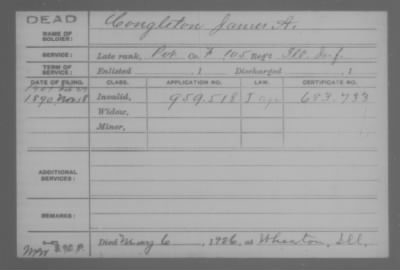 DEAD
NAME OF SOLDIER: Congleton James A.
SERVICE: Late rank, Pvt Co. F 105 Reg't Ill. Inf.
TERM OF SERVICE: Enlisted , 1 Discharged , 1
DATE OF FILING. CLASS. APPLICATION NO. LAW. CERTIFICATE NO.
1890 Nov. 8 Invalid, 959.518 683.733
Widow,
Minor,
ADDITIONAL SERVICES:
REMARKS:
Died May 6, 1926, at Wheaton, Ill.